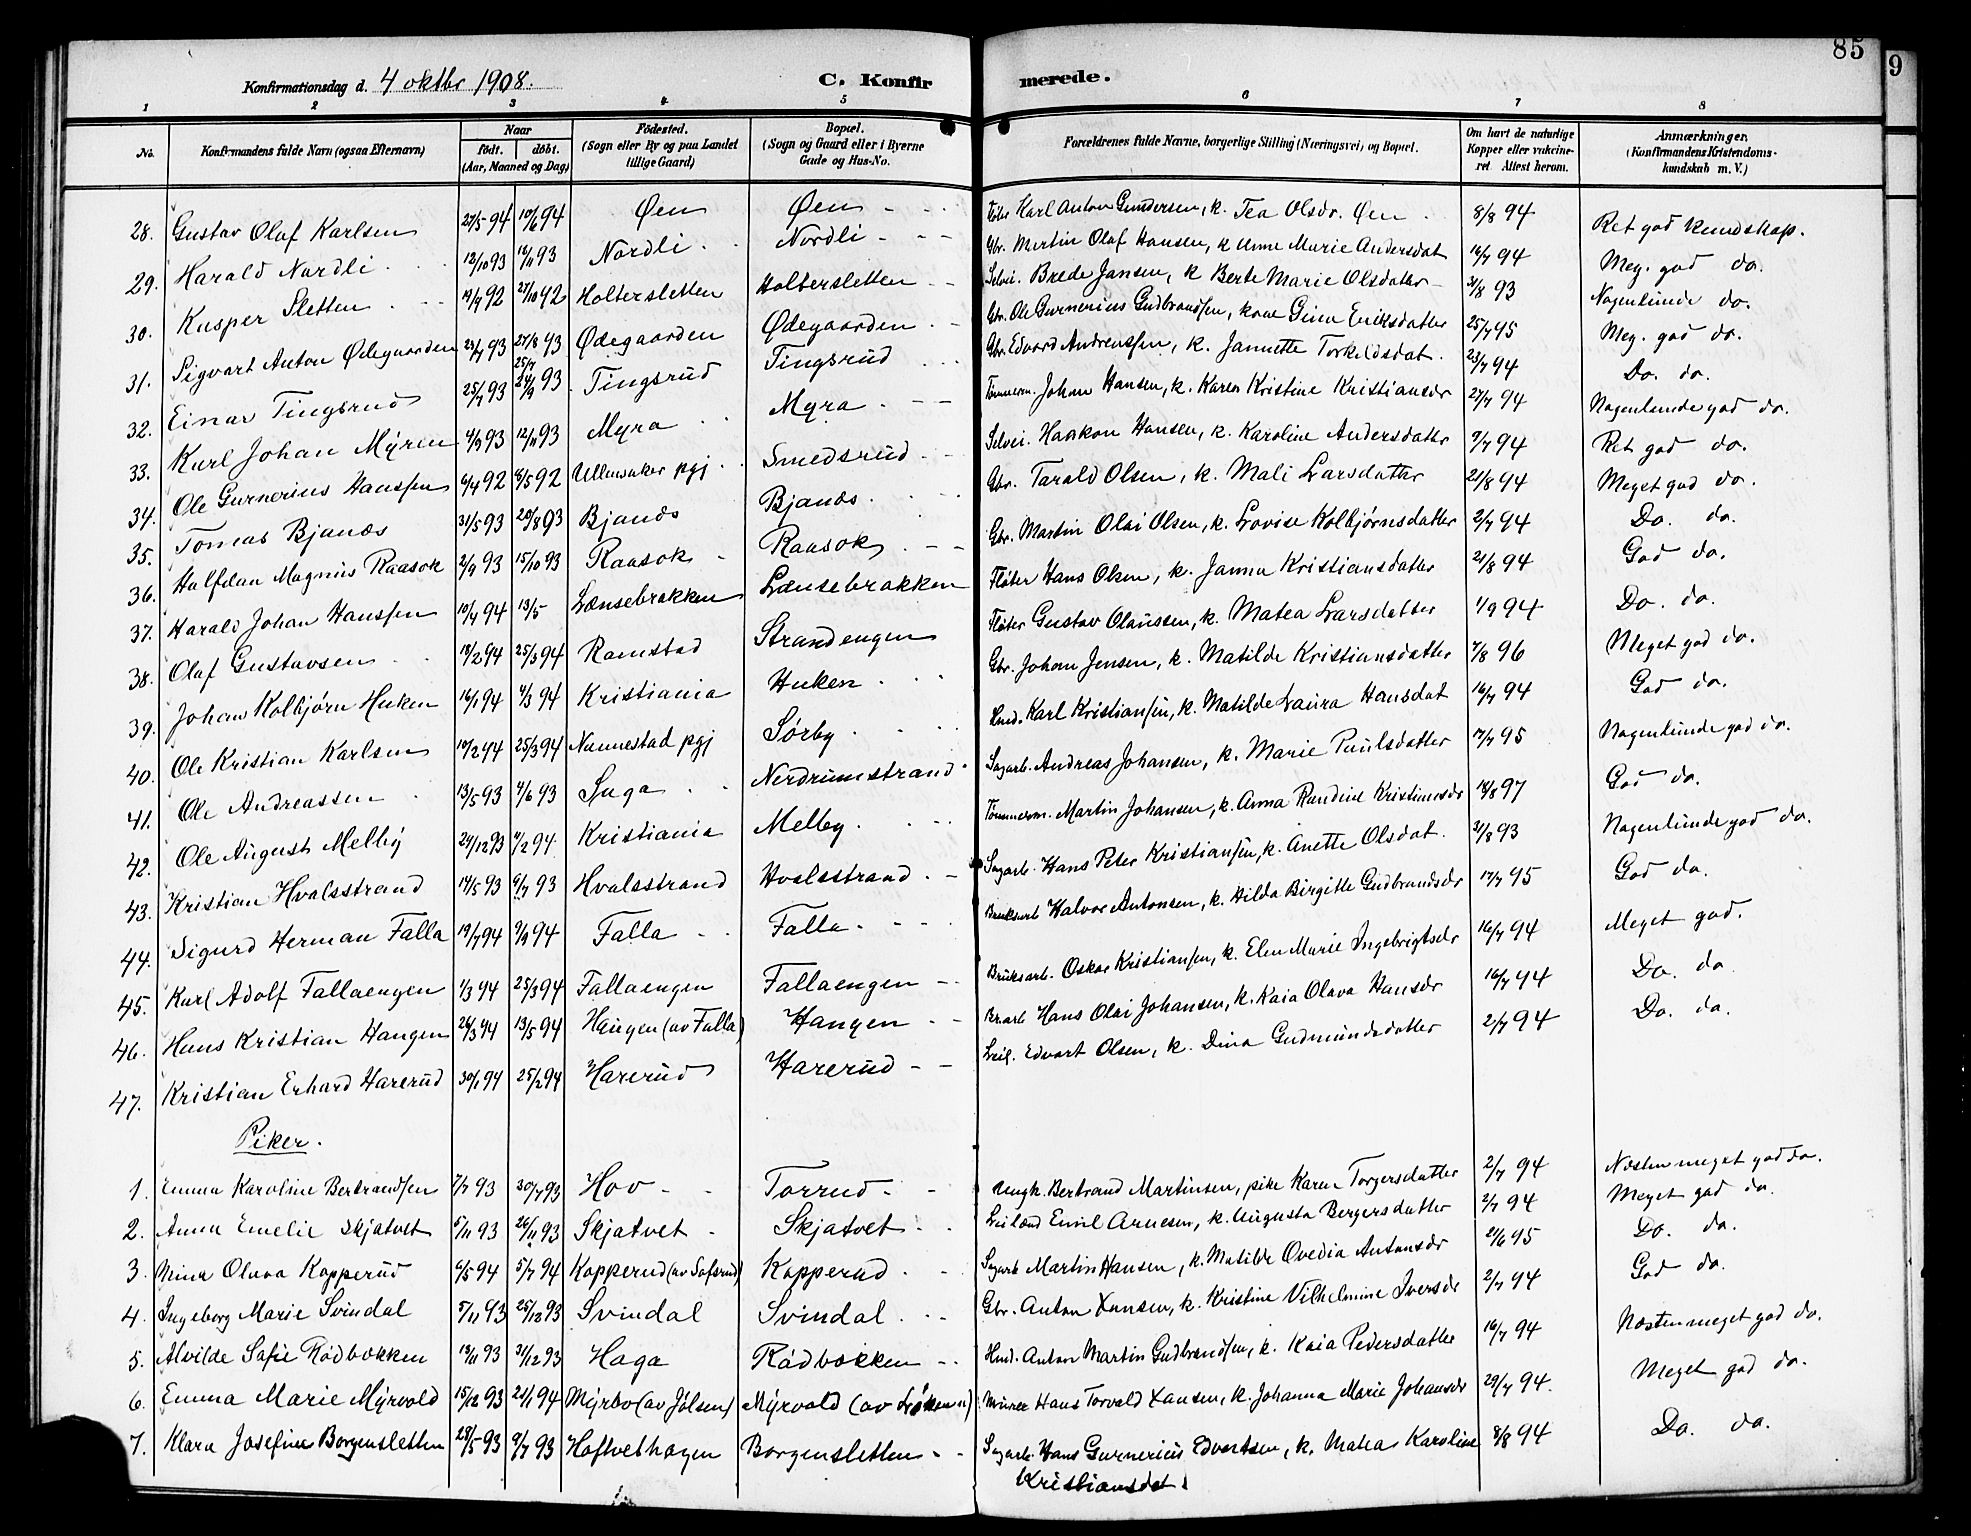 85
9
Konfirmationsdag d. 4 oktbr 1908.
C. Konfirmerede.
1 2 3 4 5 6 7 8
No. | Konfirmandens fulde Navn (ogsaa Efternavn) | Naar født. døbt. (Aar, Maaned og Dag) | Fødested. (Sogn eller By og paa Landet tillige Gaard) | Bopæl. (Sogn og Gaard eller i Byerne Gade og Hus-No. | Forældrenes fulde Navne, borgerlige Stilling (Næringsvei) og Bopæl. | Om havt de naturlige Kopper eller vakcineret Attest herom. | Anmærkninger. (Konfirmandens Kristendomskundskab m. V.)
28. Gustav Olaf Karlsen 27/5 94 10/6 94 Øen Øen Karl Anton Gundersen, k. Tea Olsdr. Øen 8/8 94 Ret god kundskap.
29. Harald Nordli 12/10 93 93 Nordli Nordli Gbr. Martin Olaf Hansen, k Anne Marie Andersdat 16/7 94 Meg. god do.
30. Kasper Sletten 92 27/10 92 Holtersletten Holtersletten Selvei. Brede Jansen, k Berte Marie Olsdatter 31/8 93 Nogenlunde do.
31. Sigvart Anton Ødegaarden 23/7 93 27/8 93 Ødegaarden Ødegaarden Gbr. Ole Gunerius Gudbrandsen, kone Gina Eriksdatter 25/7 95 Meg. god do.
32. Einar Tingsrud 25/7 93 24/9 93 Tingsrud Tingsrud Gbr. Edvard Andreassen, k. Jannette Torkildsdat. 23/7 94 Do. do.
33. Karl Johan Myren 4/9 93 12/11 93 Myra Myra Tømmerm. Johan Hansen, k. Karen Kristine Kristiansdr 27/7 94 Nogenlunde god do.
34. Ole Gunerius Hanssen 6/4 92 8/5 92 Ullensaker pgj. Smedsrud Selvei. Haakon Hansen, k. Karoline Andersdatter 9/7 94 Ret god do.
35. Tomas Bjanes 31/5 93 20/8 93 Bjanes Bjanes Gbr. Tarald Olsen, k. Mali Larsdatter 21/8 94 Meget god do.
36. Halfdan Magnus Raasok 2/9 93 15/10 93 Raasok Raasok Gbr. Martin Olai Olsen, k. Lovise Kolbjørnsdatter 2/7 94 Do. do.
37. Harald Johan Hanssen 10/4 94 13/5 Lænsebrakken Lænsebrakken Fløter Hans Olsen, k. Janna Kristiansdatter 21/8 94 God do.
38. Olaf Gustavsen 18/2 94 25/3 94 Ramstad Strandengen Fløter Gustav Olaussen, k. Matea Larsdatter 1/9 94 Do. do.
39. Johan Kolbjørn Huken 16/1 94 4/3 94 Kristiania Huken Gbr. Johan Jensen, k. Matilde Kristiansdatter 7/8 96 Meget god do.
40. Ole Kristian Karlsen 10/2 94 25/3 94 Nannestad pgj Sørby Hmd. Karl Kristiansen, k. Matilde Laura Hansdat 16/7 94 God do.
41. Ole Andreassen 13/5 93 4/6 93 Suga Nerdrumstrand Sagarb. Andreas Johansen, k. Marie Paulsdatter 17/7 95 Nogenlunde god do.
42. Ole August Melby 24/12 93 4/2 94 Kristiania Melby Tømmerm. Martin Johansen, k. Anna Randine Kristiansdr 18/8 97 God do.
43. Kristian Hvalsstrand 14/5 93 6/7 93 Hvalsstrand Hvalsstrand Sagarb. Hans Peter Kristiansen, k. Anette Olsdat. 31/8 93 Nogenlunde god do.
44. Sigurd Herman Falla 19/7 94 9/9 94 Falla Falla Bruksarb Halvor Antonsen, k. Hilda Birgitte Gudbrandsdr 17/7 95 God do.
45. Karl Adolf Fallaengen 1/3 94 25/3 94 Fallaengen Fallaengen Bruksarb. Oskar Kristiansen, k. Elen Marie Ingebrigtsdr 16/7 94 Meget god.
46. Hans Kristian Haugen 24/3 94 13/5 94 Haugen (av Falla) Haugen Brarb Hans Olai Johansen, k. Kaia Olava Hansdr 16/7 94 Do. do
47. Kristian Erhard Harerud 30/1 94 25/2 94 Harerud Harerud Leil. Edvart Olsen, k. Dina Gudmundsdatter 2/7 94 Do. do.
Piker.
1. Emma Karoline Bertrandsen 7/7 93 30/7 93 Hov Torrud Ungk. Bertrand Martinsen, pike Karen Torgersdatter 2/7 94 Næsten meget god do.
2. Anna Emelie Skjatvet 5/11 93 26/11 93 Skjatvet Skjatvet Leilænd Emil Arnesen, k. Augusta Bergersdatter 2/7 94 Meget god do.
3. Mina Olava Kopperud 6/5 94 5/7 94 Kopperud (av Sofsrud) Kopperud Sagarb Martin Hansen, k. Matilde Ovedia Antonsdr 21/6 95 Do. do.
4. Ingeborg Marie Svindal 5/11 93 25/12 93 Svindal Svindal Gbr. Anton Hansen, k. Kristine Vilhelmine Iversdr 2/7 94 God do.
5. Alvilde Sofie Rødbækken 13/11 93 31/12 93 Haga Rødbækken Hmd. Anton Martin Gudbrandsen, k. Kaia Pedersdatter 16/7 94 Næsten meget god do.
6. Emma Marie Myrvold 15/12 93 21/1 94 Myrbo (av Jølsen) Myrvold (av Løkenen) Murer Hans Torvald Hansen, k. Johanna Marie Johansdr 29/7 94. Meget god do.
7. Klara Josefine Borgensletten 28/5 93 9/7 93 Hoftvethagen Borgensletten Sagarb. Hans Gunerius Edvartsen, k. Matea Karoline 8/8 94 Do. do.
Kristiansdat.